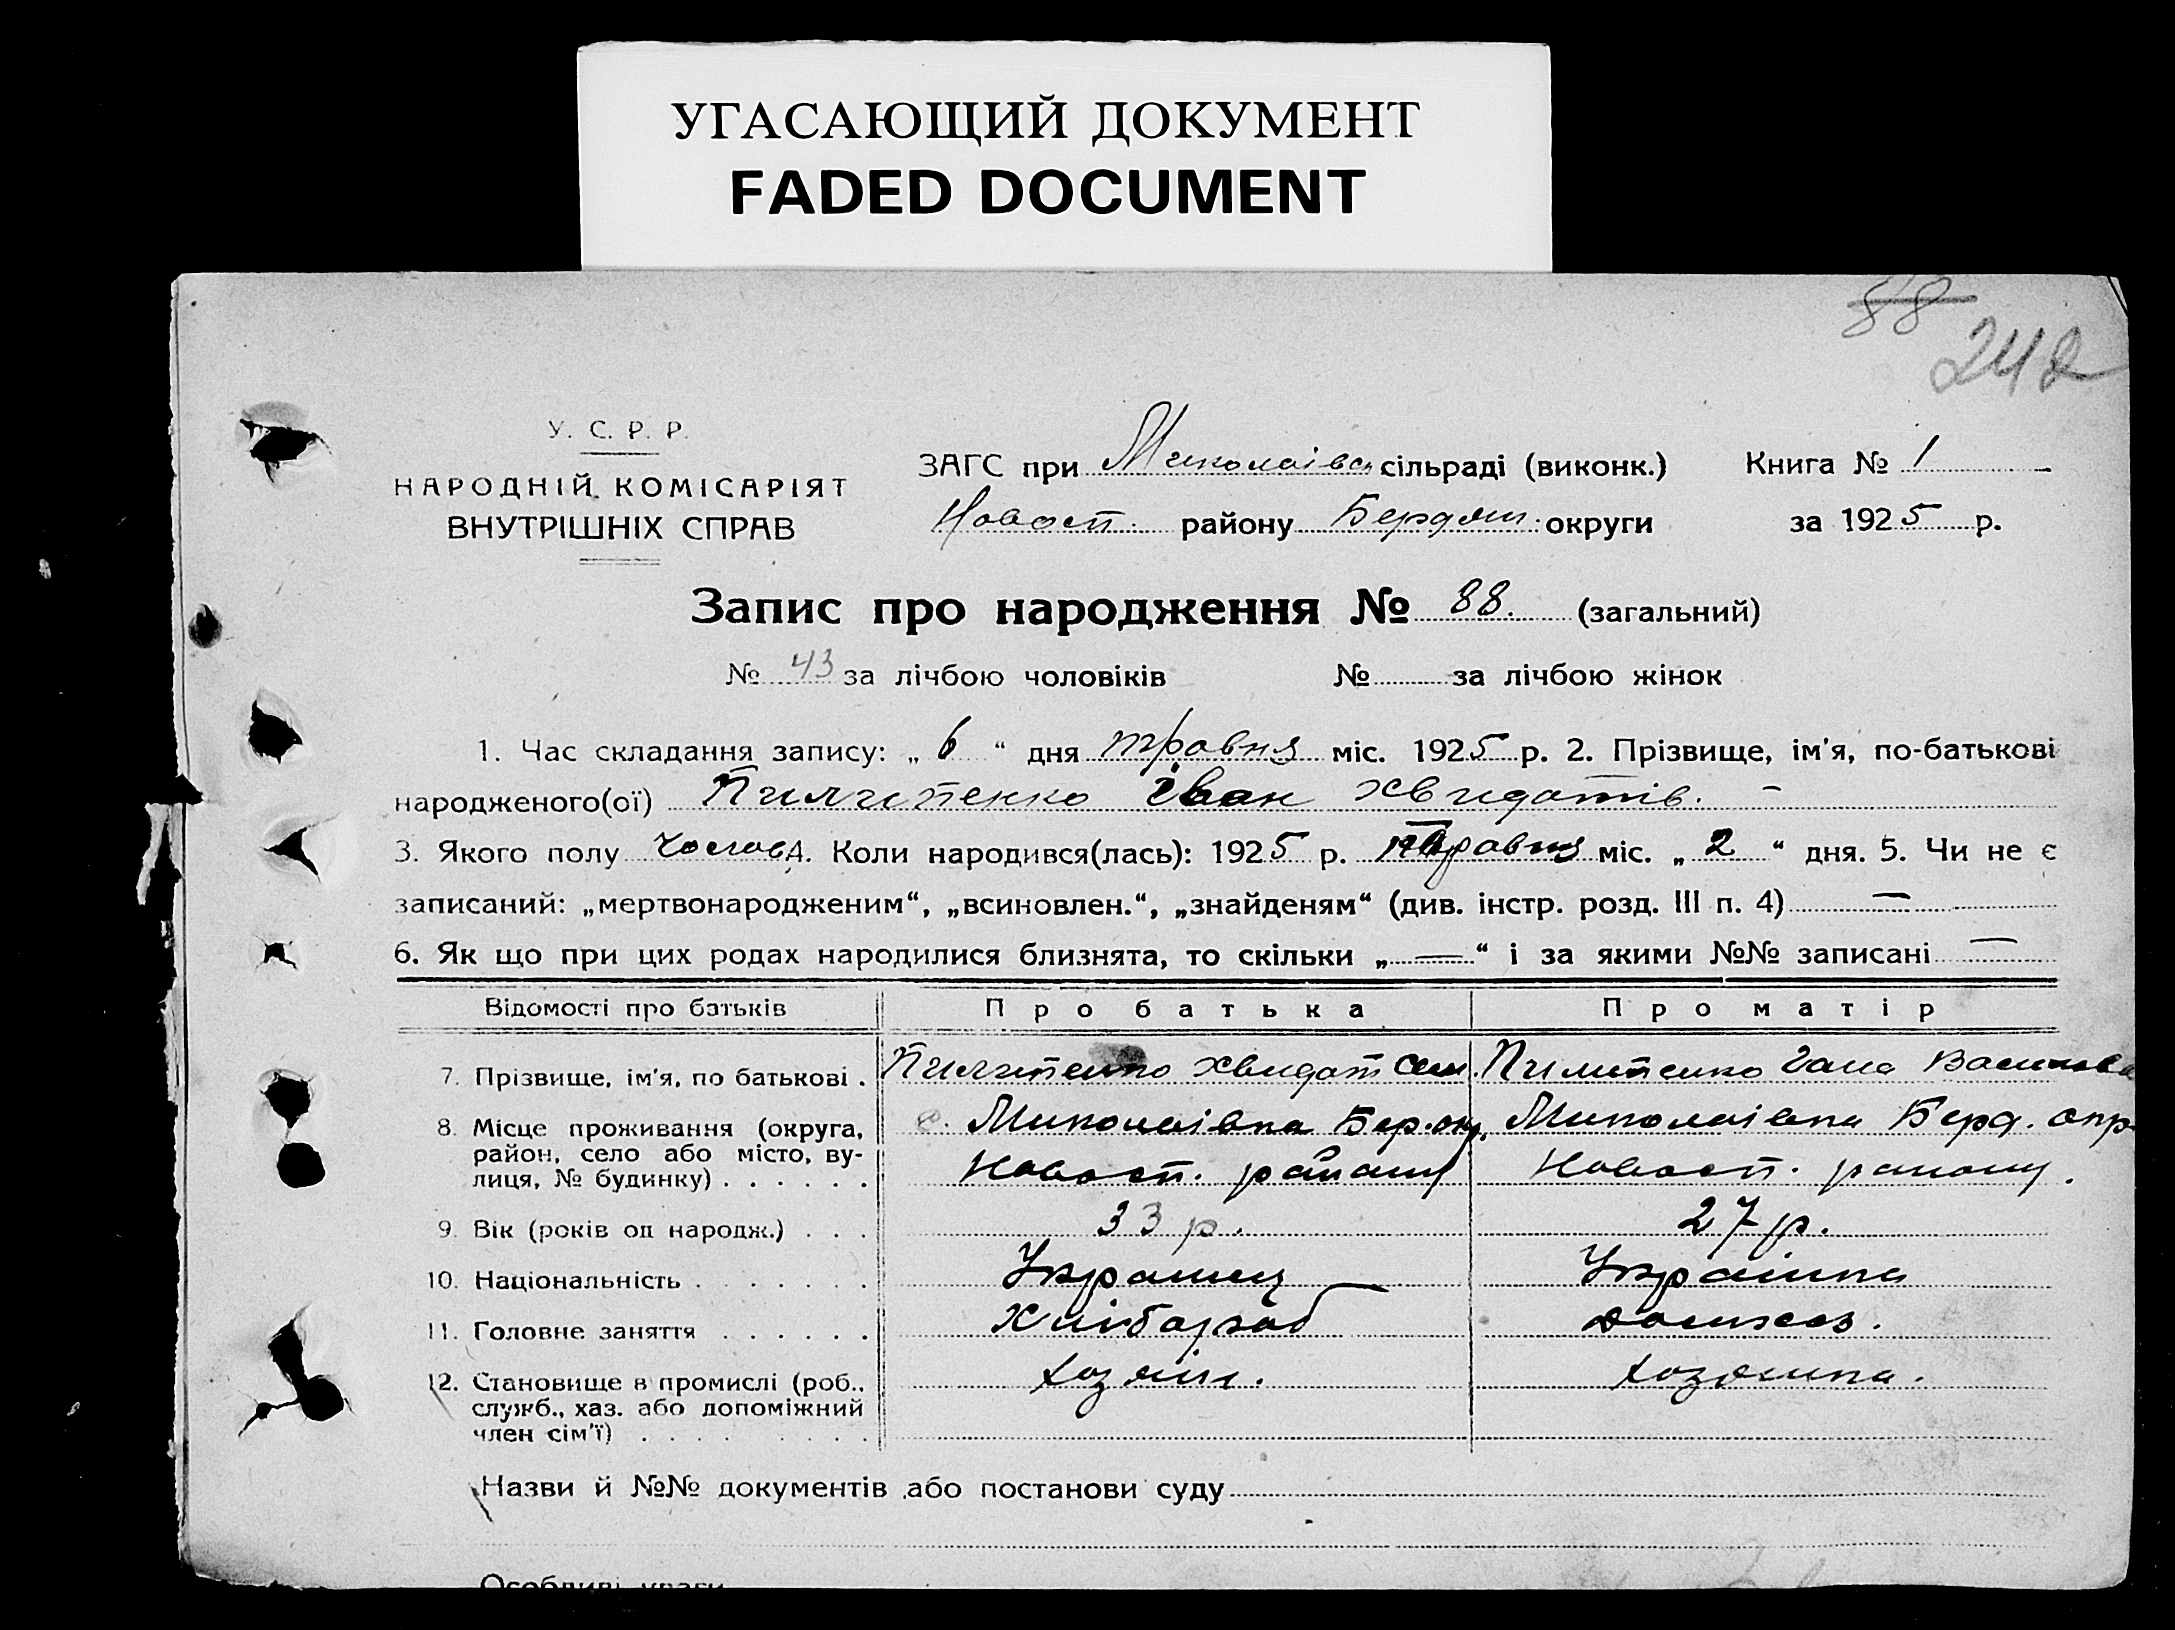 УГАСАЮЩИЙ ДОКУМЕНТ
FADED DOCUMENT
88
242
У. С. Р. Р.
НАРОДНІЙ КОМІСАРІЯТ
ВНУТРІШНІХ СПРАВ
ЗАГС при Миколаівск сільраді (виконк.) Книга № 1
Новосп. району Бердян. округи за 1925 р.
Запис про народження № 88. (загальний)
№ 43 за лічбою чоловіків № за лічбою жінок
1. Час складання запису: „ 6 “ дня травня міс. 1925 р. 2. Прізвище, ім'я, по-батькові
народженого(ої) Пилипенко Іван Хвидотів. –
3. Якого полу Чолов 4. Коли народився(лась): 1925 р. травня міс. „ 2 “ дня. 5. Чи не є
записаний: „мертвонародженим“, „всиновлен.“, „знайденям“ (див. інстр. розд. III п. 4) —
6. Як що при цих родах народилися близнята, то скільки „ — “ і за якими №№ записані —
Відомості про батьків Про батька Про матір
7. Прізвище, ім'я, по батькові . Пилипенко Хвидот Сем. Пилипенко Гана Василева
8. Місце проживання (округа, с. Миколаівка Бер. окр. Миколаівка Берд. окр
район, село або місто, ву- Новосп. району Новосп. району.
лиця, № будинку) . . . . . .
9. Вік (років од народж.) . . . 33 р. 27 р.
10. Національність . . . . . . . Украинец Украінка
11. Головне заняття . . . . . . Хлібороб домхоз.
12. Становище в промислі (роб., хозяін. хозяйка.
служб., хаз. або допоміжний
член сім'ї) . . . . . . . . .
Назви й №№ документів або постанови суду
Особливі уваги